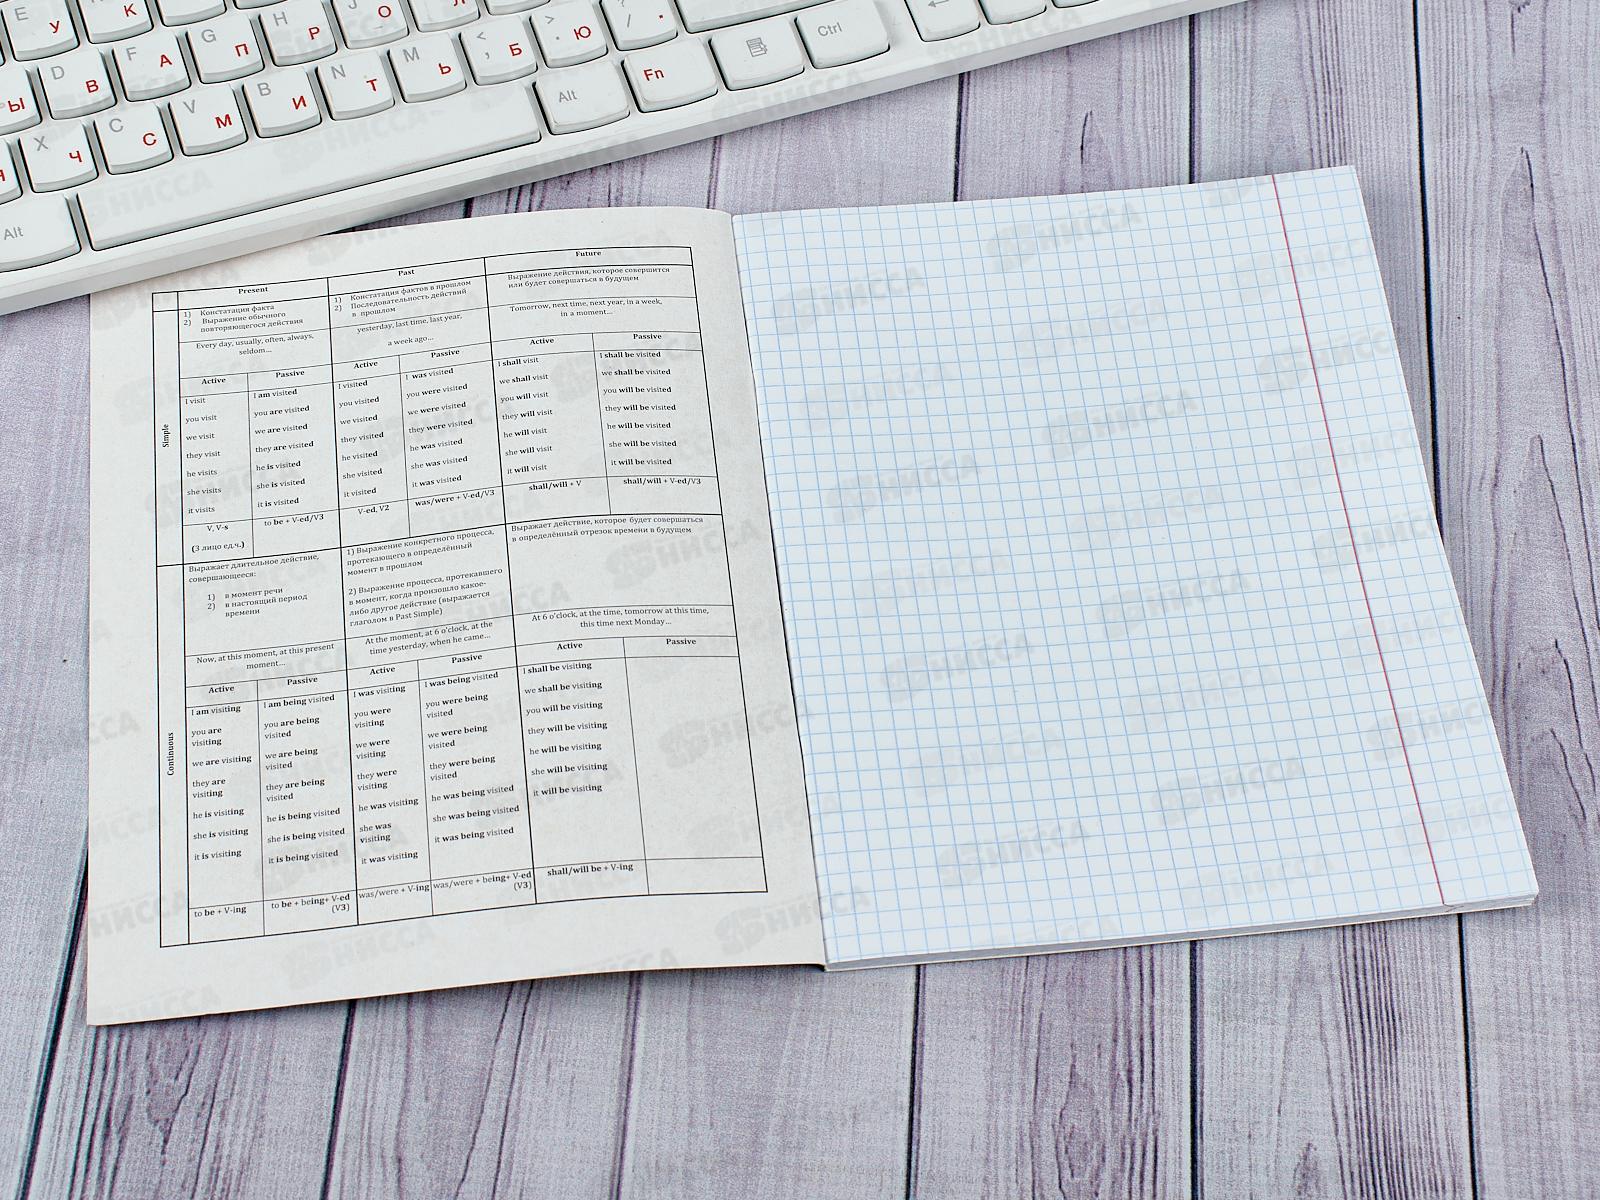 E У К H Р J О Л
D В F А G П > . Ю ? / .
Ы V М B И N Т M Ь < , Б Fn Ctrl
X Ч C С Alt
Alt
Present Past Future
1) Констатация факта
2) Выражение обычного
повторяющегося действия
1) Констатация фактов в прошлом
2) Последовательность действий
в прошлом
Выражение действия, которое совершится
или будет совершаться в будущем
Every day, usually, often, always,
seldom...
yesterday, last time, last year,
a week ago...
Tomorrow, next time, next year, in a week,
in a moment...
Active Passive Active Passive Active Passive
Simple
I visit I am visited I visited I was visited I shall visit I shall be visited
you visit you are visited you visited you were visited we shall visit we shall be visited
we visit we are visited we visited we were visited you will visit you will be visited
they visit they are visited they visited they were visited they will visit they will be visited
he visits he is visited he visited he was visited he will visit he will be visited
she visits she is visited she visited she was visited she will visit she will be visited
it visits it is visited it visited it was visited it will visit it will be visited
V, V-s to be + V-ed/V3 V-ed, V2 was/were + V-ed/V3 shall/will + V shall/will + V-ed/V3
(3 лицо ед.ч.)
Continuous
Выражает длительное действие,
совершающееся:
1) в момент речи
2) в настоящий период
времени
1) Выражение конкретного процесса,
протекающего в определённый
момент в прошлом
2) Выражение процесса, протекавшего
в момент, когда произошло какое-
либо другое действие (выражается
глаголом в Past Simple)
Выражает действие, которое будет совершаться
в определённый отрезок времени в будущем
Now, at this moment, at this present
moment...
At the moment, at 6 o'clock, at the
time yesterday, when he came...
At 6 o'clock, at the time, tomorrow at this time,
this time next Monday...
Active Passive Active Passive Active Passive
I am visiting
you are
visiting
we are visiting
they are
visiting
he is visiting
she is visiting
it is visiting
to be + V-ing
I am being visited
you are being
visited
we are being
visited
they are being
visited
he is being visited
she is being visited
it is being visited
to be + being+ V-ed
(V3)
I was visiting
you were
visiting
we were
visiting
they were
visiting
he was visiting
she was
visiting
it was visiting
was/were + V-ing
I was being visited
you were being
visited
we were being
visited
they were being
visited
he was being visited
she was being visited
it was being visited
was/were + being+ V-ed
(V3)
I shall be visiting
we shall be visiting
you will be visiting
they will be visiting
he will be visiting
she will be visiting
it will be visiting
shall/will be + V-ing
НИССА